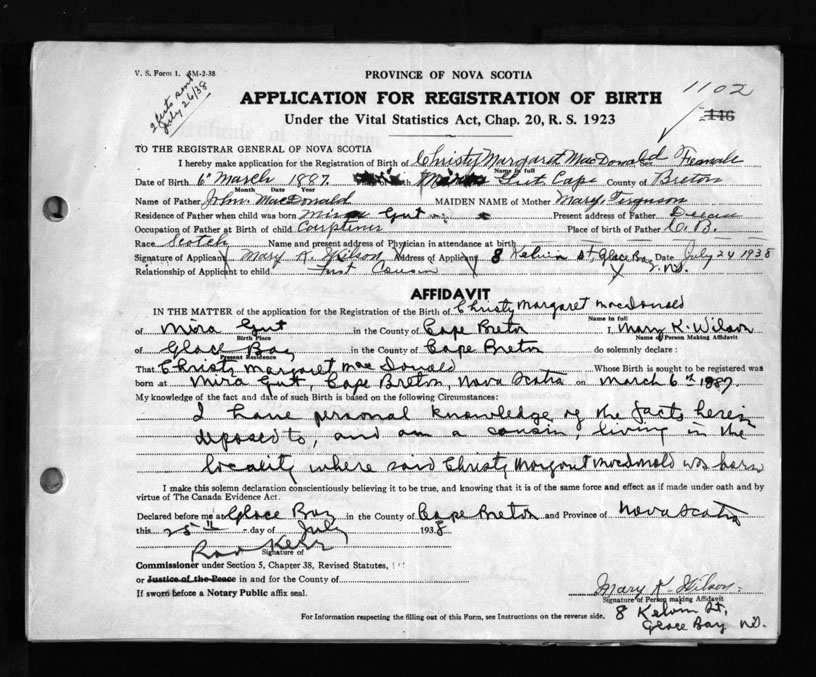 V. S. Form 1. 5M-2-38
PROVINCE OF NOVA SCOTIA
1102
July 26/38
APPLICATION FOR REGISTRATION OF BIRTH
146
Under the Vital Statistics Act, Chap. 20, R. S. 1923
TO THE REGISTRAR GENERAL OF NOVA SCOTIA
I hereby make application for the Registration of Birth of Christy Margaret MacDonald Sex Female
Name in full
Date of Birth 6th March 1887 Gut Cape County of Breton
Month Date Year
Name of Father John MacDonald MAIDEN NAME of Mother Mary Ferguson
Residence of Father when child was born Mira Gut Present address of Father
Occupation of Father at Birth of child Place of birth of Father C. B.
Race Scotch Name and present address of Physician in attendance at birth
Signature of Applicant Mary K. Wilson Address of Applicant 8 Kelvin St, Glace Bay Date July 24 1938
Relationship of Applicant to child First Cousin
AFFIDAVIT
IN THE MATTER of the application for the Registration of the Birth of Christy Margaret MacDonald
Name in full
of Mira Gut in the County of Cape Breton I, Mary K. Wilson
Birth Place Name of Person Making Affidavit
of Glace Bay in the County of Cape Breton do solemnly declare:
Present Residence
That Christy Margaret MacDonald Whose Birth is sought to be registered was
born at Mira Gut, Cape Breton, Nova Scotia on March 6th 1887.
My knowledge of the fact and date of such Birth is based on the following Circumstances:
I have personal knowledge of the facts herein
deposed to, and am a cousin, living in the
locality where said Christy Margaret MacDonald was born
I make this solemn declaration conscientiously believing it to be true, and knowing that it is of the same force and effect as if made under oath and by
virtue of The Canada Evidence Act.
Declared before me at Glace Bay in the County of Cape Breton and Province of Nova Scotia
this 25th day of July 1938
Kerr
Signature of
Commissioner under Section 5, Chapter 38, Revised Statutes,
or Justice of the Peace in and for the County of
If sworn before a Notary Public affix seal.
Mary K. Wilson.
Signature of Person making Affidavit
8 Kelvin St,
Glace Bay N.S.
For Information respecting the filling out of this Form, see Instructions on the reverse side.